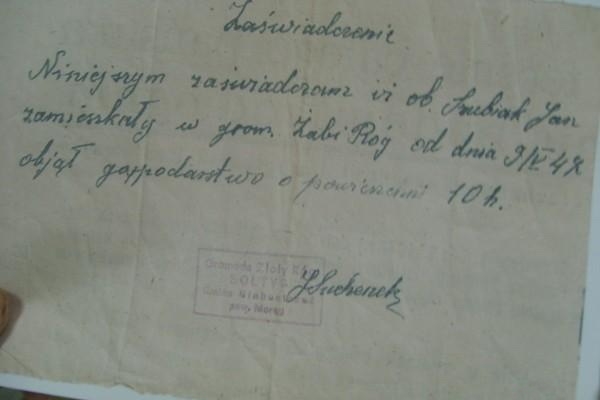 Zaświadczenie
Niniejszym zaświadczam iż ob. Szubiak Jan
zamieszkały w grom. Żabi Róg od dnia 9/V 47
objął gospodarstwo o powierzchni 10 h.
Gromada Złoty Róg
SOŁTYS
Gmina
pow. Morąg
J Suchenek